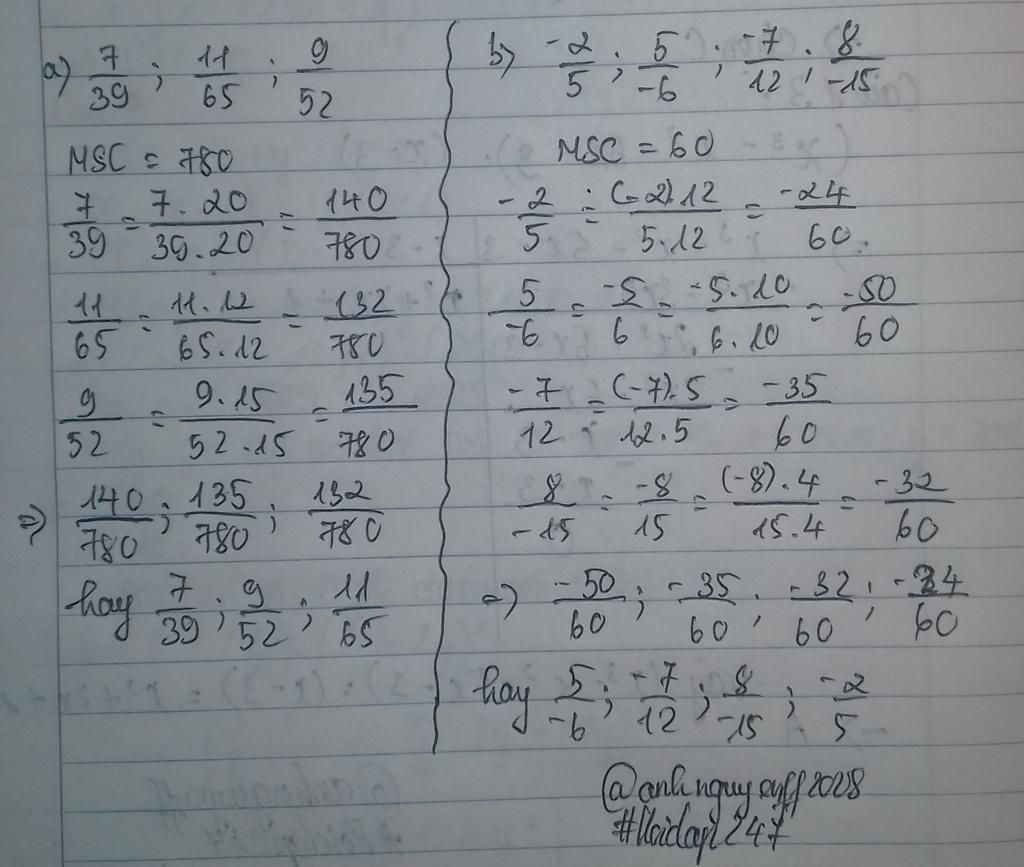 a) 7/39 ; 11/65 ; 9/52
MSC = 780
7/39 = 7.20/39.20 = 140/780
11/65 = 11.12/65.12 = 132/780
9/52 = 9.15/52.15 = 135/780
=> 140/780 ; 135/780 ; 132/780
hay 7/39 ; 9/52 ; 11/65
b) -2/5 ; 5/-6 ; -7/12 ; 8/-15
MSC = 60
-2/5 = (-2).12/5.12 = -24/60
5/-6 = -5/6 = -5.10/6.10 = -50/60
-7/12 = (-7).5/12.5 = -35/60
8/-15 = -8/15 = (-8).4/15.4 = -32/60
=> -50/60 ; -35/60 ; -32/60 ; -24/60
hay 5/-6 ; -7/12 ; 8/-15 ; -2/5